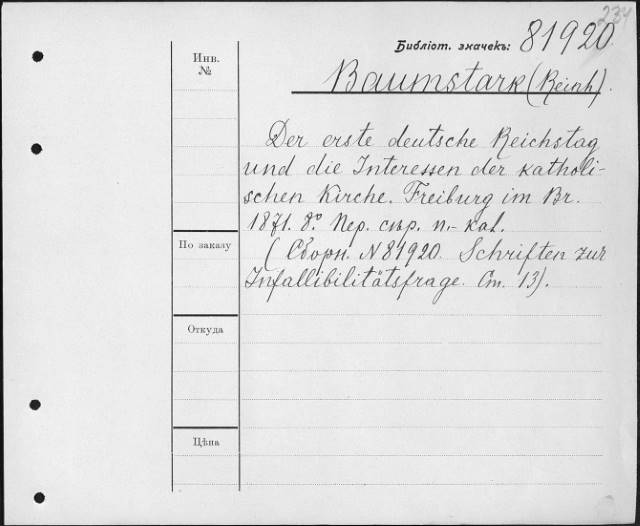 234
Библіот. значекъ: 81920
Инв.
№
Baumstark (Reinh).
Der erste deutsche Reichstag
und die Interessen der katholi-
schen Kirche. Freiburg im Br.
1871. 8º Пер. сѣр. п.-кал.
По заказу
(Сборн. N 81920. Schriften zur
Infallibilitätsfrage. Ст. 13).
Откуда
Цѣна